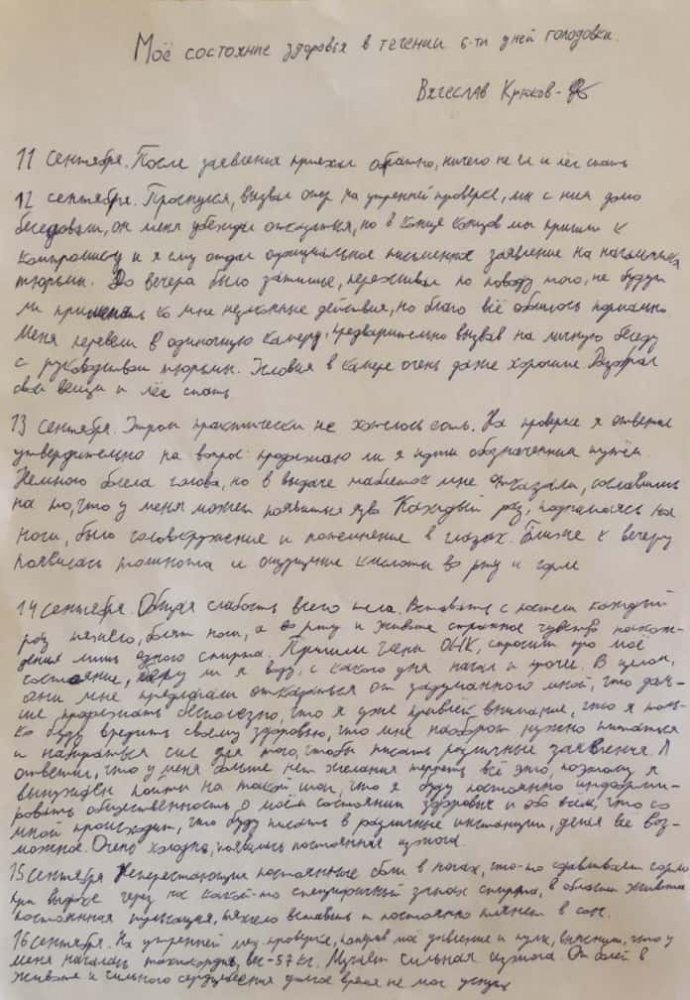 Моё состояние здоровья в течении 6-ти дней голодовки.
Вячеслав Крюков -
11 сентября. После заявления приехал обратно, ничего не ел и лёг спать
12 сентября. Проснулся, вызвал опер на утренней проверке, мы с ним долго
беседовали, он меня убеждал отказаться, но в конце концов мы пришли к
компромиссу и я ему отдал официальное письменное заявление на начальника
тюрьмы. До вечера было затишье, переживал по поводу того, не будут
ли применять ко мне незаконные действия, но благо всё обошлось нормально
Меня перевели в одиночную камеру, предварительно вызвав на личную беседу
с руководством тюрьмы. Условия в камере очень даже хорошие. Разобрал
свои вещи и лёг спать
13 сентября. Утром практически не хотелось есть. На проверке я ответил
утвердительно на вопрос продолжаю ли я идти обозначенным путём.
Немного болела голова, но в выдаче таблеток мне отказали, сославшись
на то, что у меня может появиться язва. Каждый раз, поднимаясь на
ноги, было головокружение и потемнение в глазах. Ближе к вечеру
появилась тошнота и ощущение кислоты во рту и горле
14 сентября. Общая слабость всего тела. Вставать с постели каждый
раз тяжело, болят ноги, а во рту и животе странное чувство нахож-
дения лишь одного спирта. Пришли члены ОНК, спросили про моё
состояние, пью ли я воду, с какого дня начал и прочее. В целом,
они мне предлагали отказаться от задуманного мной, что даль-
ше продолжать бесполезно, что я уже привлёк внимание, что я толь-
ко буду вредить своему здоровью, что мне наоборот нужно питаться
и набираться сил для того, чтобы писать различные заявления. Я
ответил, что у меня больше нет желания терпеть всё это, поэтому я
вынужден пойти на такой шаг, что я буду постоянно информи-
ровать общественность о моём состоянии здоровья и обо всём, что со
мной происходит, что буду писать в различные инстанции, делая всё воз-
можное. Очень холодно, появилась постоянная изжога.
15 сентября Непрестающие постоянные боли в ногах, что-то сдавливает горло
при выдохе через нос какой-то специфичный запах спирта, в области живота
постоянная пульсация, тяжело вставать и постоянно клонит в сон.
16 сентября. На утренней мед. проверке, померив моё давление и пульс, выяснили, что у
меня началась тахикардия, вес - 57 кг. Мучает сильная изжога. От болей в
животе и сильного сердцебиения долгое время не мог уснуть